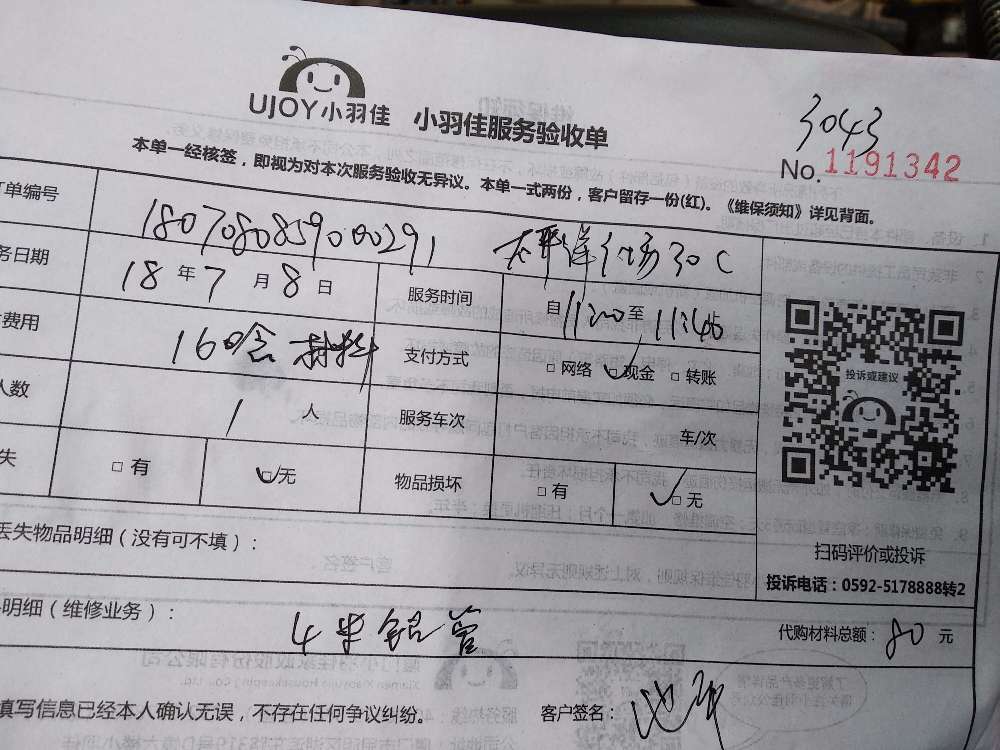 UJOY小羽佳 小羽佳服务验收单
3043
No.1191342
本单一经核签，即视为对本次服务验收无异议。本单一式两份，客户留存一份(红)。《维保须知》详见背面。
订单编号 180708085900291 太平洋广场30C
务日期 18年7月8日 服务时间 自11:00至11:40
费用 160 含材料 支付方式 □网络 ☑现金 □转账
人数 1人 服务车次 车/次
失 □有 ☑无 物品损坏 □有 ☑无
投诉或建议
扫码评价或投诉
投诉电话：0592-5178888转2
丢失物品明细（没有可不填）：
明细（维修业务）： 4米铝管 代购材料总额：80元
填写信息已经本人确认无误，不存在任何争议纠纷。 客户签名：